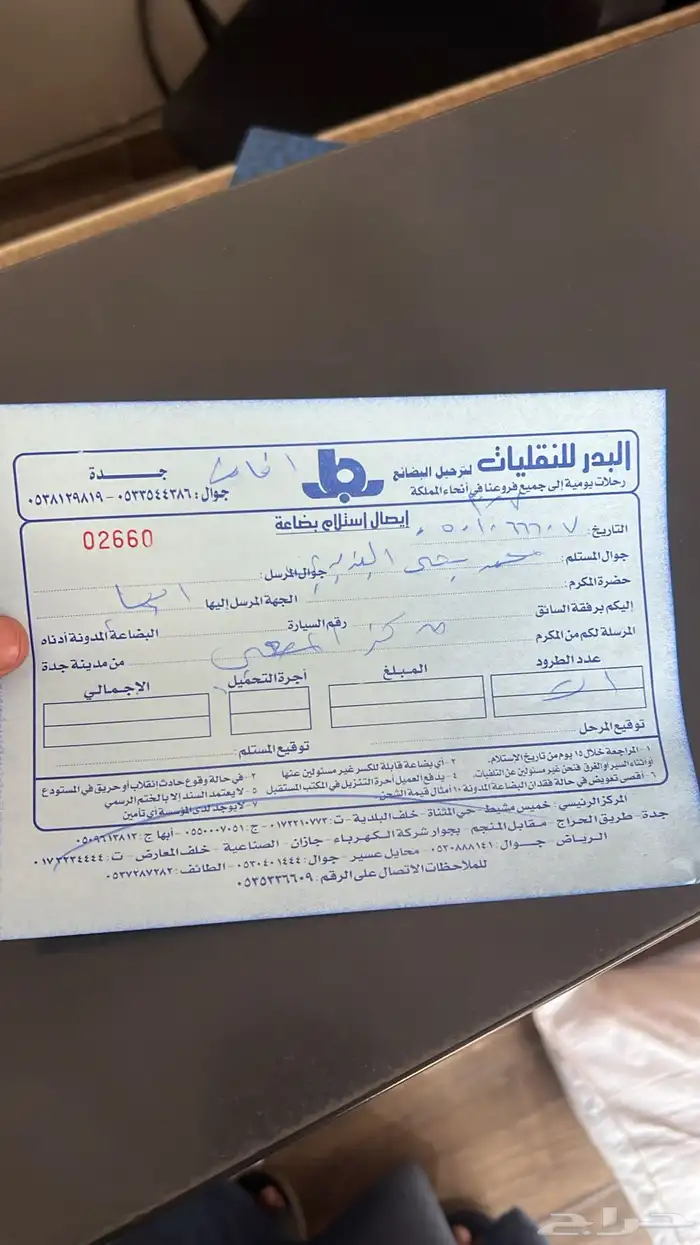 البدر للنقليات لترحيل البضائع
رحلات يومية إلى جميع فروعنا في أنحاء المملكة
جدة
جوال: ٠٥٣٣٥٤٤٣٨٦ - ٠٥٣٨١٢٩٨١٩
إيصال إستلام بضاعة
02660
التاريخ:
جوال المستلم: جوال المرسل:
حضرة المكرم: محمد يحيى الجهة المرسل إليها ابها
إليكم برفقة السائق رقم السيارة البضاعة المدونة أدناه
المرسلة لكم من المكرم مركز من مدينة جدة
عدد الطرود المبلغ أجرة التحميل الإجمالي
توقيع المرحل توقيع المستلم:
١- المراجعة خلال ١٥ يوم من تاريخ الإستلام. ٢- أي بضاعة قابلة للكسر غير مسئولين عنها ٣- في حالة وقوع حادث انقلاب أو حريق في المستودع
أو أثناء السير أو الغرق فنحن غير مسئولين عن التلفيات. ٤- يدفع العميل أجرة التنزيل في المكتب المستقبل ٥- لا يعتمد السند إلا بالختم الرسمي
٦- أقصى تعويض في حالة فقدان البضاعة المدونة ١٠ أمثال قيمة الشحن ٧- لا يوجد لدى المؤسسة أي تأمين
المركز الرئيسي: خميس مشيط - حي المثناة - خلف البلدية - ت: ٠١٧٢٢١٠٧٧٢ - ج: ٠٥٥٠٠٠٧٠٥١ - أبها ج: ٠٥٠٩٦١٣٨١٣
جدة - طريق الحراج - مقابل المنجم - بجوار شركة الكهرباء - جازان - الصناعية - خلف المعارض - ت: ٠١٧٣٢٣٤٤٤٤
الرياض - جوال: ٠٥٣٠٨٨٨١٤١ - محايل عسير - جوال: ٠٥٣٠٤٠١٤٤٤ - الطائف: ٠٥٣٧٢٨٧٢٨٢
للملاحظات الاتصال على الرقم: ٠٥٣٥٣٣٦٦٠٩
حراج